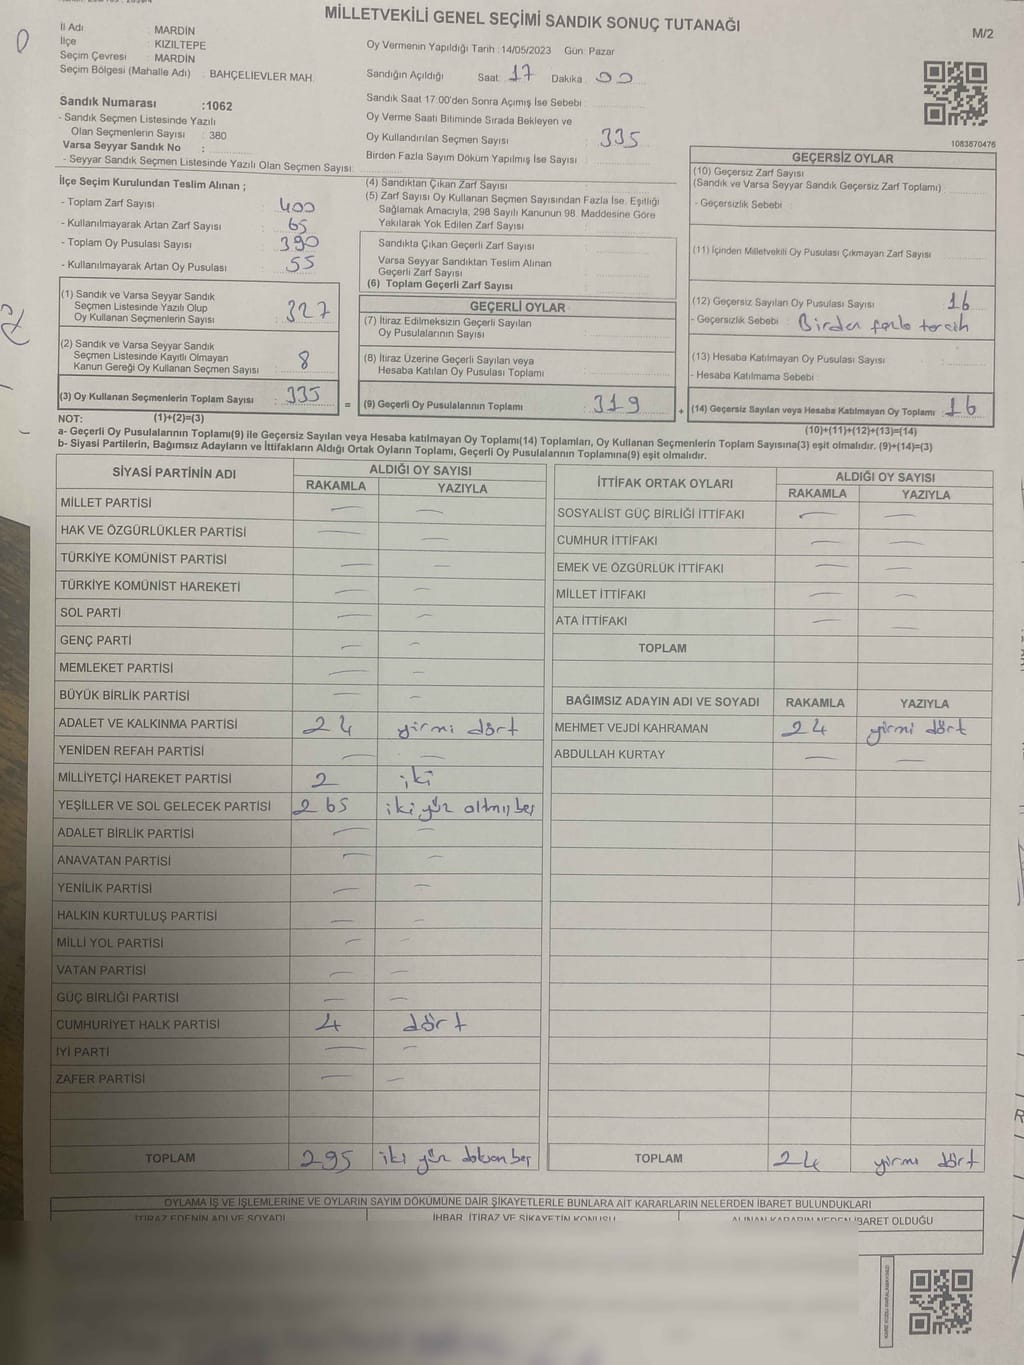 MİLLETVEKİLİ GENEL SEÇİMİ SANDIK SONUÇ TUTANAĞI
M/2
İl Adı : MARDİN
İlçe : KIZILTEPE
Seçim Çevresi : MARDİN
Seçim Bölgesi (Mahalle Adı) : BAHÇELİEVLER MAH.
Oy Vermenin Yapıldığı Tarih : 14/05/2023 Gün: Pazar
Sandığın Açıldığı Saat: 17 Dakika: 00
Sandık Saat 17:00'den Sonra Açımış İse Sebebi :
Sandık Numarası :1062
- Sandık Seçmen Listesinde Yazılı
Olan Seçmenlerin Sayısı : 380
Varsa Seyyar Sandık No :
- Seyyar Sandık Seçmen Listesinde Yazılı Olan Seçmen Sayısı:
Oy Verme Saati Bitiminde Sırada Bekleyen ve
Oy Kullandırılan Seçmen Sayısı : 335
Birden Fazla Sayım Döküm Yapılmış İse Sayısı :
1083870476
İlçe Seçim Kurulundan Teslim Alınan ;
- Toplam Zarf Sayısı : 400
- Kullanılmayarak Artan Zarf Sayısı : 65
- Toplam Oy Pusulası Sayısı : 390
- Kullanılmayarak Artan Oy Pusulası : 55
(1) Sandık ve Varsa Seyyar Sandık
Seçmen Listesinde Yazılı Olup
Oy Kullanan Seçmenlerin Sayısı : 327
(2) Sandık ve Varsa Seyyar Sandık
Seçmen Listesinde Kayıtlı Olmayan
Kanun Gereği Oy Kullanan Seçmen Sayısı : 8
(3) Oy Kullanan Seçmenlerin Toplam Sayısı : 335
(4) Sandıktan Çıkan Zarf Sayısı :
(5) Zarf Sayısı Oy Kullanan Seçmen Sayısından Fazla İse, Eşitliği
Sağlamak Amacıyla, 298 Sayılı Kanunun 98. Maddesine Göre
Yakılarak Yok Edilen Zarf Sayısı :
Sandıkta Çıkan Geçerli Zarf Sayısı :
Varsa Seyyar Sandıktan Teslim Alınan
Geçerli Zarf Sayısı :
(6) Toplam Geçerli Zarf Sayısı :
GEÇERLİ OYLAR
(7) İtiraz Edilmeksizin Geçerli Sayılan
Oy Pusulalarının Sayısı :
(8) İtiraz Üzerine Geçerli Sayılan veya
Hesaba Katılan Oy Pusulası Toplamı :
= (9) Geçerli Oy Pusulalarının Toplamı : 319
GEÇERSİZ OYLAR
(10) Geçersiz Zarf Sayısı
(Sandık ve Varsa Seyyar Sandık Geçersiz Zarf Toplamı) :
- Geçersizlik Sebebi :
(11) İçinden Milletvekili Oy Pusulası Çıkmayan Zarf Sayısı :
(12) Geçersiz Sayılan Oy Pusulası Sayısı : 16
- Geçersizlik Sebebi : Birden fazla tercih
(13) Hesaba Katılmayan Oy Pusulası Sayısı :
- Hesaba Katılmama Sebebi :
+ (14) Geçersiz Sayılan veya Hesaba Katılmayan Oy Toplamı : 16
NOT: (1)+(2)=(3)
(10)+(11)+(12)+(13)=(14)
a- Geçerli Oy Pusulalarının Toplamı(9) ile Geçersiz Sayılan veya Hesaba katılmayan Oy Toplamı(14) Toplamları, Oy Kullanan Seçmenlerin Toplam Sayısına(3) eşit olmalıdır. (9)+(14)=(3)
b- Siyasi Partilerin, Bağımsız Adayların ve İttifakların Aldığı Ortak Oyların Toplamı, Geçerli Oy Pusulalarının Toplamına(9) eşit olmalıdır.
SİYASİ PARTİNİN ADI ALDIĞI OY SAYISI
RAKAMLA YAZIYLA
MİLLET PARTİSİ — —
HAK VE ÖZGÜRLÜKLER PARTİSİ — —
TÜRKİYE KOMÜNİST PARTİSİ — —
TÜRKİYE KOMÜNİST HAREKETİ — —
SOL PARTİ — —
GENÇ PARTİ — —
MEMLEKET PARTİSİ — —
BÜYÜK BİRLİK PARTİSİ — —
ADALET VE KALKINMA PARTİSİ 24 yirmi dört
YENİDEN REFAH PARTİSİ — —
MİLLİYETÇİ HAREKET PARTİSİ 2 iki
YEŞİLLER VE SOL GELECEK PARTİSİ 265 iki yüz altmış beş
ADALET BİRLİK PARTİSİ — —
ANAVATAN PARTİSİ — —
YENİLİK PARTİSİ — —
HALKIN KURTULUŞ PARTİSİ — —
MİLLİ YOL PARTİSİ — —
VATAN PARTİSİ — —
GÜÇ BİRLİĞİ PARTİSİ — —
CUMHURİYET HALK PARTİSİ 4 dört
İYİ PARTİ — —
ZAFER PARTİSİ — —
TOPLAM 295 iki yüz doksan beş
İTTİFAK ORTAK OYLARI ALDIĞI OY SAYISI
RAKAMLA YAZIYLA
SOSYALİST GÜÇ BİRLİĞİ İTTİFAKI — —
CUMHUR İTTİFAKI — —
EMEK VE ÖZGÜRLÜK İTTİFAKI — —
MİLLET İTTİFAKI — —
ATA İTTİFAKI — —
TOPLAM
BAĞIMSIZ ADAYIN ADI VE SOYADI RAKAMLA YAZIYLA
MEHMET VEJDİ KAHRAMAN 24 yirmi dört
ABDULLAH KURTAY — —
TOPLAM 24 yirmi dört
OYLAMA İŞ VE İŞLEMLERİNE VE OYLARIN SAYIM DÖKÜMÜNE DAİR ŞİKAYETLERLE BUNLARA AİT KARARLARIN NELERDEN İBARET BULUNDUKLARI
İTİRAZ EDENİN ADI VE SOYADI İHBAR, İTİRAZ VE ŞİKAYETİN KONUSU ALINAN KARARIN NEDEN İBARET OLDUĞU